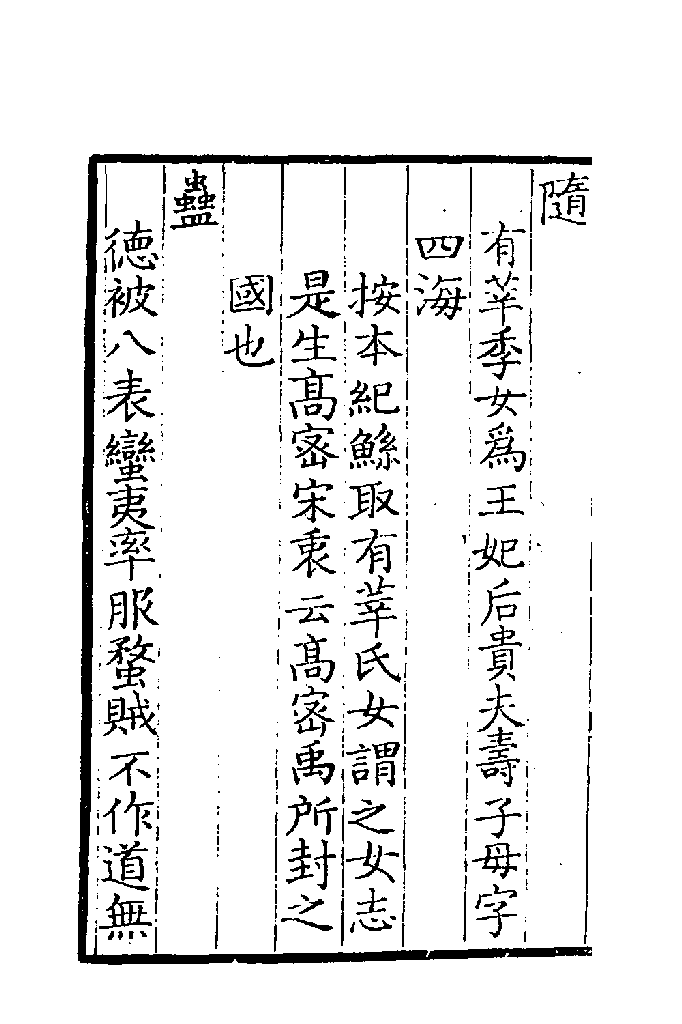 隨
有莘季女爲王妃后貴夫壽子母字
四海
按本紀鯀取有莘氏女謂之女志
是生髙宻宋衷云髙宻禹所封之
國也
蠱
德被八表蠻夷率服蝥賊不作道無